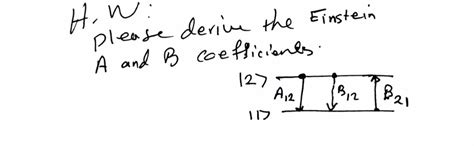 H.W:
please derive the Einstein
A and B coefficients.
|2>
A12 B12 B21
|1>